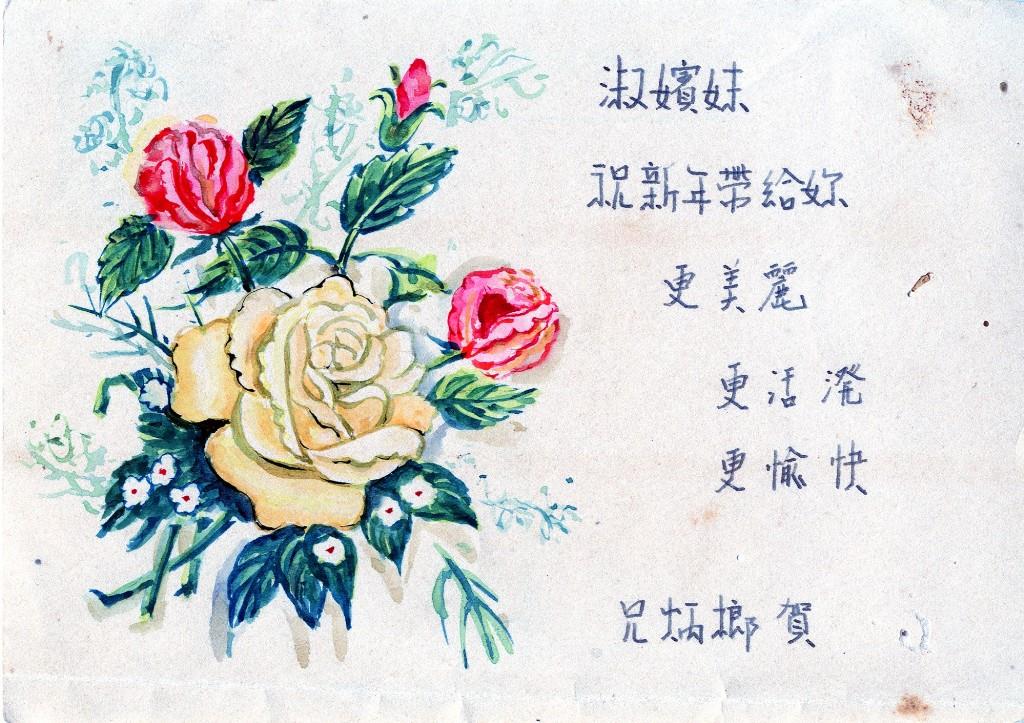 淑嬪妹
祝新年帶給妳
更美麗
更活潑
更愉快
兄炳榔賀